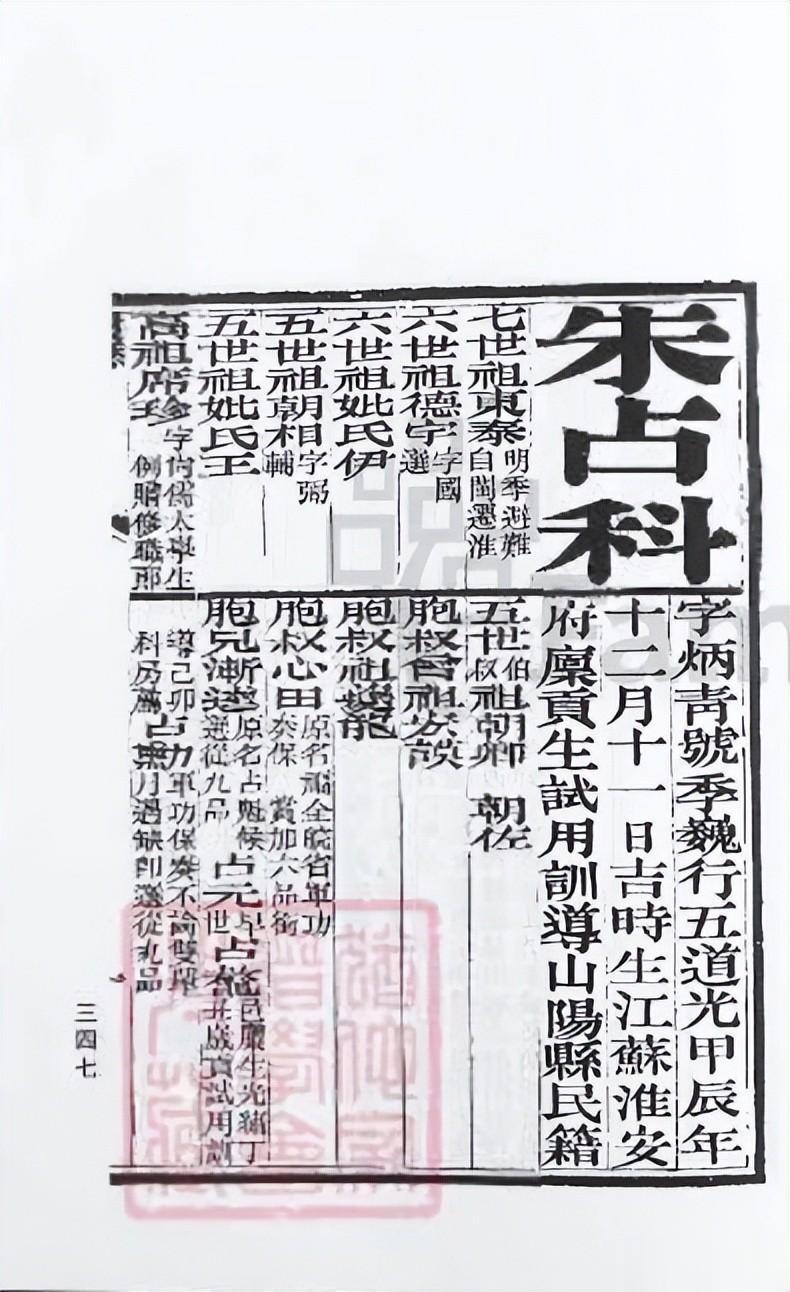 朱占科
字炳青號季巍行五道光甲辰年
十二月十一日吉時生江蘇淮安
府廩貢生試用訓導山陽縣民籍
七世祖東泰明季避難
自閩遷淮
六世祖德宇字國
選
六世祖妣氏伊
五世祖朝相字弼
輔
五世祖妣氏王
高祖席珍字尚儒太學生
例贈修職郎
五世伯叔祖朝卿 朝佐
胞叔曾祖
胞叔祖龍
胞叔心田原名 全皖省軍功
奏保 賞加六品銜
胞兄漸逵原名占魁候
選從九品
占元早
世
占 邑廩生光緒丁
丑歲貢試用訓
導己卯
科房薦
占 軍功保奏不論雙單
月過缺即選從九品
三四七